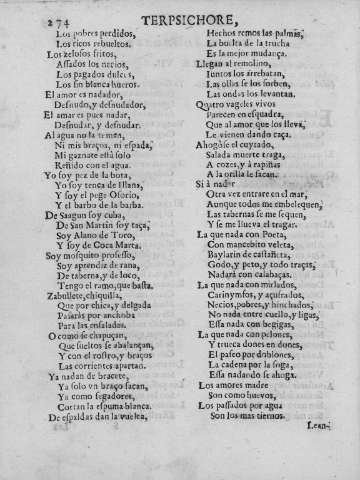 274 TERPSICHORE,
Los pobres perdidos,
Los ricos rebueltos.
Los zelosos fritos,
Assados los necios,
Los pagados dulces,
Los sin blanca hueros.
El amor es nadador,
Desnudo, y desnudador,
El amar es pues nadar,
Desnudar, y desnudar.
Al agua no la temen,
Ni mis braços, ni espada,
Mi gaznate està solo
Reñido con el agua.
Yo soy pez de la bota,
Yo soy tenca de Illana,
Y soy el pege Osorio,
Y el barbo de la barba.
De Saagun soy cuba,
De San Martin soy taça,
Soy Alano de Toro,
Y soy de Coca Marta.
Soy mosquito professo,
Soy aprendiz de rana,
De taberna, y de loco,
Tengo el ramo, que basta.
Zabullete, chiquilla,
Que por chica, y delgada
Passaràs por anchoba
Para las ensaladas.
O como se chapuçan,
Que sueltos se abalançan,
Y con el rostro, y braços
Las corrientes apartan.
Ya nadan de bracete,
Ya solo vn braço sacan,
Ya como segadores,
Cortan la espuma blanca.
De espaldas dan la vuelta,
Hechos remos las palmas,
La buelta de la trucha
Es la mejor mudança.
Llegan al remolino,
Iuntos los arrebatan,
Las ollas se los sorben,
Las ondas los levantan.
Quatro vageles vivos
Parecen en esquadra,
Que al amor que los lleva,
Le vienen dando caça.
Ahogòse el cuytado,
Salada muerte traga,
A cozes, y à rapiñas
A la orilla le sacan.
Si à nadar
Otra vez entrare en el mar,
Aunque todos me embelequen,
Las tabernas se me sequen,
Y se me llueva el tragar.
La que nada con Poeta,
Con mancebito veleta,
Baylarin de castañeta,
Godo, y peto, y todo traças,
Nadarà con calabaças.
La que nada con mirlados,
Carinymfos, y açufrados,
Necios, pobres, y hinchados,
No nada entre cuello, y ligas,
Essa nada con begigas.
La que nada con pelones,
Y trueca dones en dones,
El paseo por doblones,
La cadena por la soga,
Essa nadando se ahoga.
Los amores madre
Son como huevos,
Los passados por agua
Son los mas tiernos.
Lean-